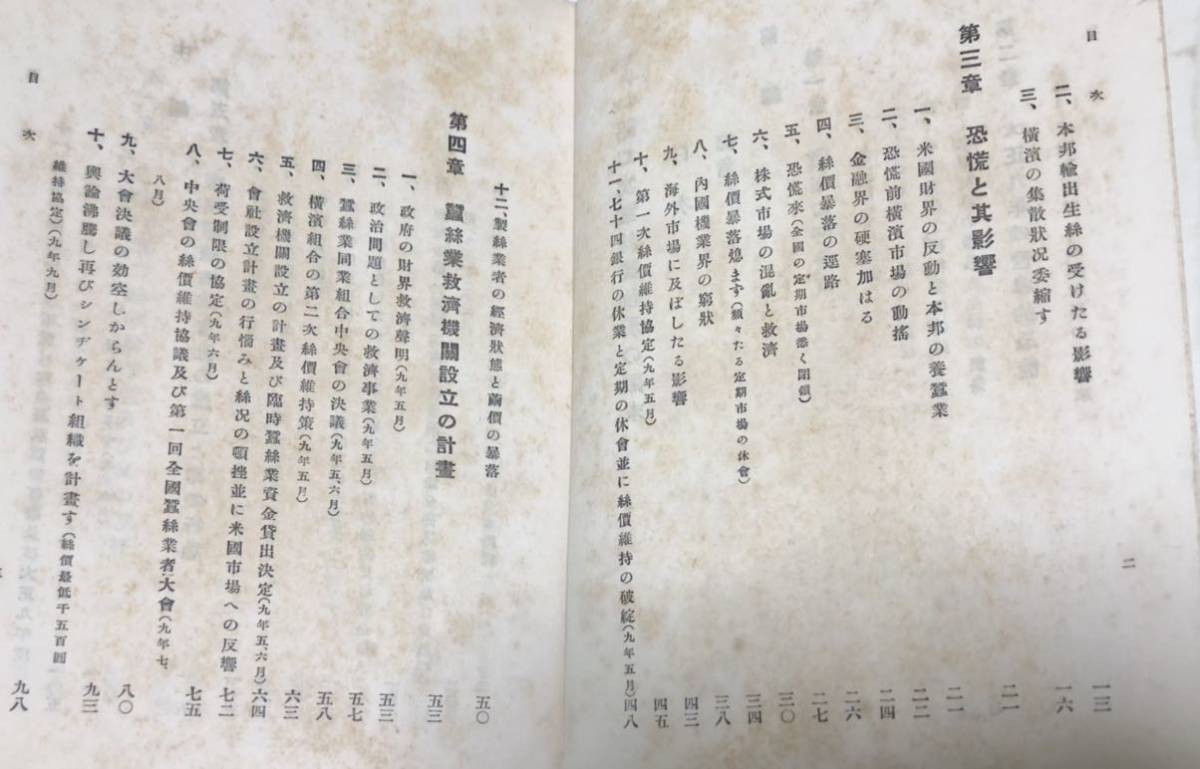 目次
二
二、本邦輸出生絲の受けたる影響 一三
三、橫濱の集散狀況委縮す 一六
第三章 恐慌と其影響 二一
一、米國財界の反動と本邦の養蠶業 二一
二、恐慌前橫濱市場の動搖 二二
三、金融界の硬塞加はる 二四
四、絲價暴落の逕路 二六
五、恐慌來(全國の定期市場悉く閉鎖) 二七
六、株式市場の混亂と救濟 三〇
七、絲價暴落熄まず(頻々たる定期市場の休會) 三四
八、內國機業界の窮狀 三八
九、海外市場に及ぼしたる影響 四三
十、第一次絲價維持協定(九年五月) 四五
十一、七十四銀行の休業と定期の休會並に絲價維持の破綻(九年五月) 四八
十二、製絲業者の經濟狀態と繭價の暴落 五〇
第四章 蠶絲業救濟機關設立の計畫 五三
一、政府の財界救濟聲明(九年五月)
二、政治問題としての救濟事業(九年五月) 五三
三、蠶絲業同業組合中央會の決議(九年五、六月) 五七
四、橫濱組合の第二次絲價維持策(九年五月) 五八
五、救濟機關設立の計畫及び臨時蠶絲業資金貸出決定(九年五、六月) 六三
六、會社設立計畫の行惱みと絲況の頓挫並に米國市場への反響 六四
七、荷受制限の協定(九年六月) 七二
八、中央會の絲價維持協議及び第一回全國蠶絲業者大會(九年七、 七五
八月)
九、大會決議の効空しからんとす 八〇
十、輿論沸騰し再びシンヂケート組織を計畫す(絲價最低千五百圓 九三
維持協定)(九年九月) 九八
目次